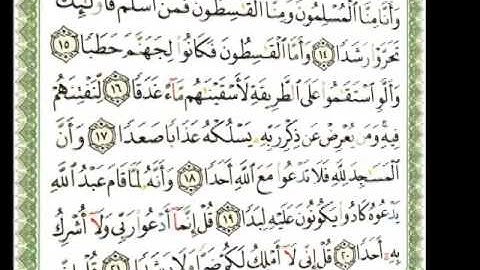 وَأَنَّا مِنَّا ٱلْمُسْلِمُونَ وَمِنَّا ٱلْقَٰسِطُونَ فَمَنْ أَسْلَمَ فَأُو۟لَٰٓئِكَ
تَحَرَّوْا۟ رَشَدًا ١٤ وَأَمَّا ٱلْقَٰسِطُونَ فَكَانُوا۟ لِجَهَنَّمَ حَطَبًا ١٥
وَأَلَّوِ ٱسْتَقَٰمُوا۟ عَلَى ٱلطَّرِيقَةِ لَأَسْقَيْنَٰهُم مَّآءً غَدَقًا ١٦ لِّنَفْتِنَهُمْ
فِيهِ وَمَن يُعْرِضْ عَن ذِكْرِ رَبِّهِۦ يَسْلُكْهُ عَذَابًا صَعَدًا ١٧ وَأَنَّ
ٱلْمَسَٰجِدَ لِلَّهِ فَلَا تَدْعُوا۟ مَعَ ٱللَّهِ أَحَدًا ١٨ وَأَنَّهُۥ لَمَّا قَامَ عَبْدُ ٱللَّهِ
يَدْعُوهُ كَادُوا۟ يَكُونُونَ عَلَيْهِ لِبَدًا ١٩ قُلْ إِنَّمَآ أَدْعُوا۟ رَبِّى وَلَآ أُشْرِكُ
بِهِۦٓ أَحَدًا ٢٠ قُلْ إِنِّى لَآ أَمْلِكُ لَكُمْ ضَرًّا وَلَا رَشَدًا ٢١ قُلْ إِنِّى